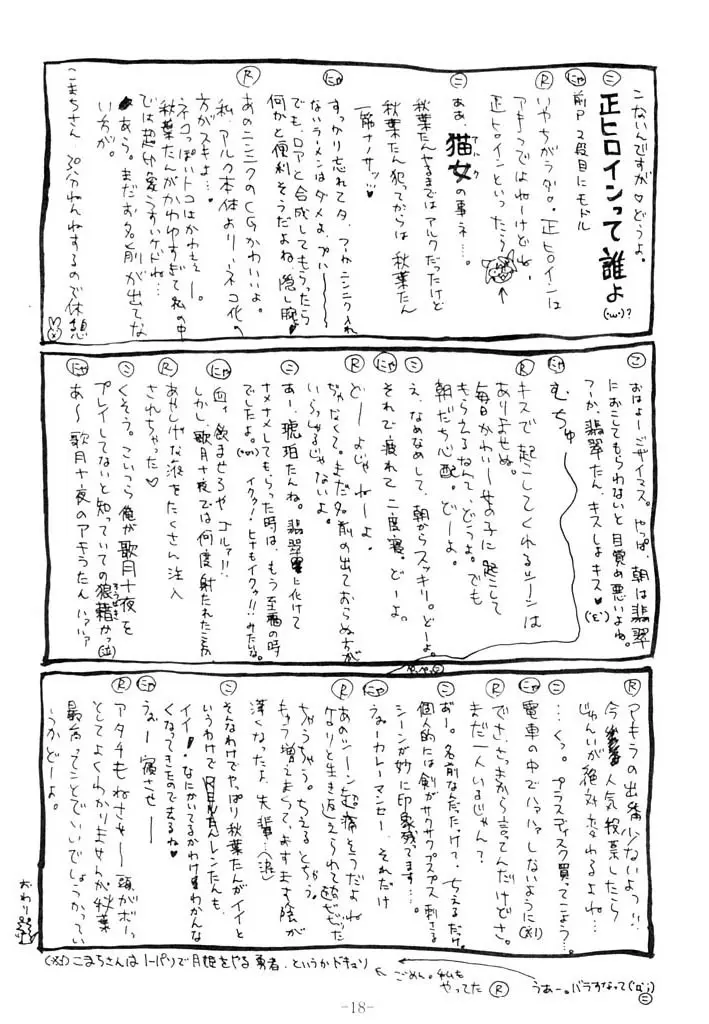 こないんですが♡どうよ。
㊁ 正ヒロインって誰よ(・ω・)?
にゃ 前P 2段目にモドル
R いやちがうダロ。正ヒロインは
アキラではねーけどぉ、
正ヒロインといったら
㊁ ああ、猫女の事ネ…。
アルク
秋葉たんやるまではアルクだったけど
秋葉たん犯ってからは 秋葉たん
一筋ナノサッ…♥
にゃ すっかり忘れてタ、つーかニンニク入れ
ないラーメンはダメよ、プハー〜〜
でも、ロアと合成してもらったら
何かと便利そうだよね 隠し腕♥
R あのニンニクのCGかわいいよ。
私、アルク本体より、ネコ化の
方がスキよ…♥
ネコっぽいトコはかわえー。
秋葉たんがかわゆすぎて私の中
では超印象うすいケドネ…
あう。まだお名前が出てな
い方が。
こまちさん、30分ねんねするので休憩
㋙ おはよーゴザイマス。やっぱ、朝は翡翠
におこしてもらわないと目覚め悪いよね。
つーか、翡翠たん、キスしよキス♥(・ε・)
にゃ むちゅ
R キスで起こしてくれるシーンは
ありませぬ。
毎日かわいー女の子に起こして
もらえるなんて、どうよ。でも
朝だち心配。どーよ。
㊁ え、なめなめして、朝からスッキリ。どーよ。
にゃ それで疲れて二度寝。どーよ。
R どーよじゃねーよ。
ぢゃなくて。まだ名前の出ておらぬ方が
いらっしゃるじゃないよ。
㊁ あー、琥珀たんね。翡翠に化けて
ナメナメしてもらった時は、もう至福の時
でしたよ。(・ω・)イクッ!ヒャもイクッ!!みたいな。
にゃ 血ィ飲ませろや ゴルァ!!
しかし、歌月十夜では何度射たれたことか
R あやしげな液をたくさん注入
されちゃった♡
㊁ くそう。こいつら俺が歌月十夜を
プレイしてないと知っていての狼藉かっ(泣)
ろうぜき
にゃ あ〜歌月十夜のアキラたんハァハァ
R アキラの出番少ないよっ!!
今人気投票したら
じゅんいが絶対変わるよね…
㊁ …くっ。プラスディスク買ってこよう…。
にゃ 電車の中でハァハァしないように(※1)
R でさ、さっきから言ってんだけどさ。
まだ一人いるじゃん?
㊁ おー。名前なんだたっけて、ちえるだけ。
個人的には剣がサクサクプスプス刺さる
シーンが妙に印象残てます…。
にゃ うぇーカレーマンセー。それだけ
R あのシーン超痛そうだよね
ちゃうちゃう。ちえるとちゃう。
キャラ増えまくって、ますます陰が
深くなったよ、先輩…(泣)
㊁ そんなわけでやっぱり秋葉たんがイイと
いうわけで 月んレンたんも
イイ!なにかいてるかわけわかんな
くなってきたので去るね♥
にゃ うぉー寝させー
R アタチもねさせー〜頭がボーッ
としてよくわかりませんが秋葉
最高ってことでいいでしょうかってい
うかどーよ。
おわり
(※1)こまちさんはノーパソで月姫をやる勇者、というかドキュソ
ごめん。私もやってた R
うあー。バラすなって(・д・;) ㊁
-18-